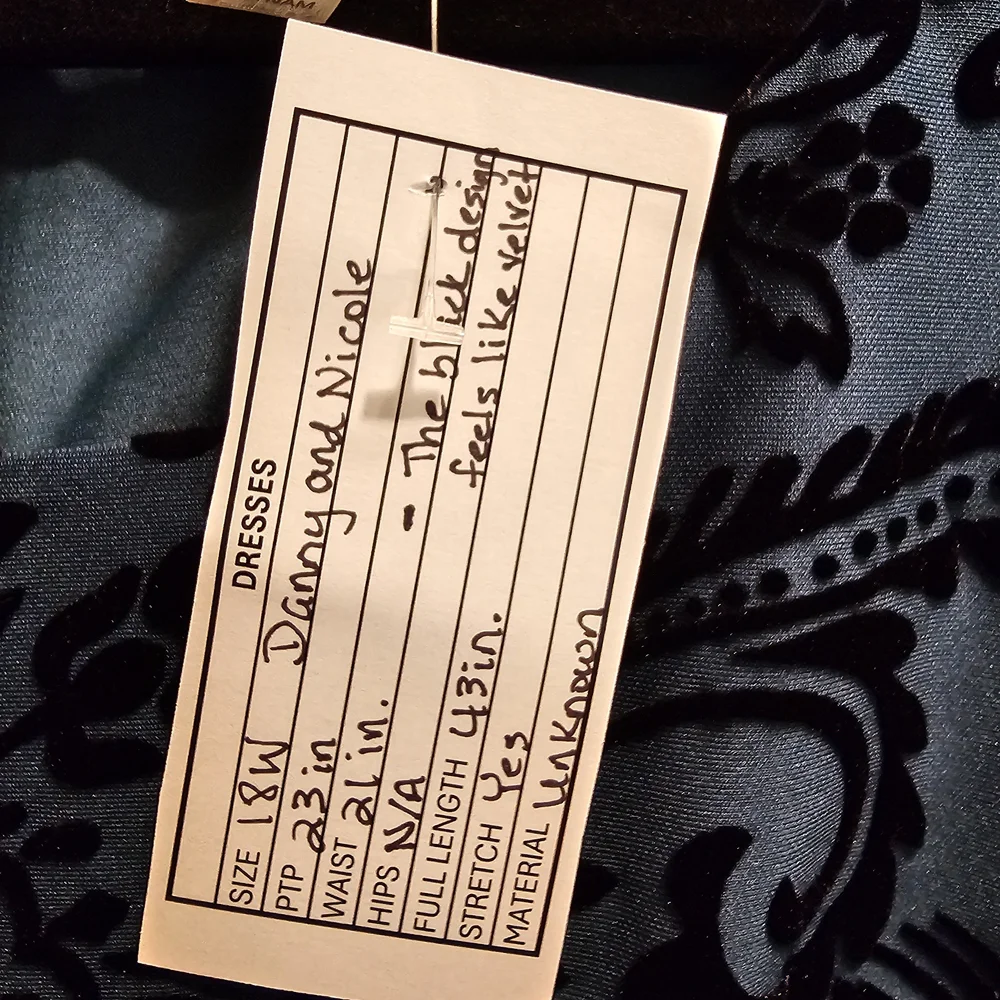 DRESSES
SIZE 18W Danny and Nicole
PTP 23 in
WAIST 21 in.
HIPS N/A - The black design
FULL LENGTH 43in. feels like velvet
STRETCH Yes
MATERIAL Unknown